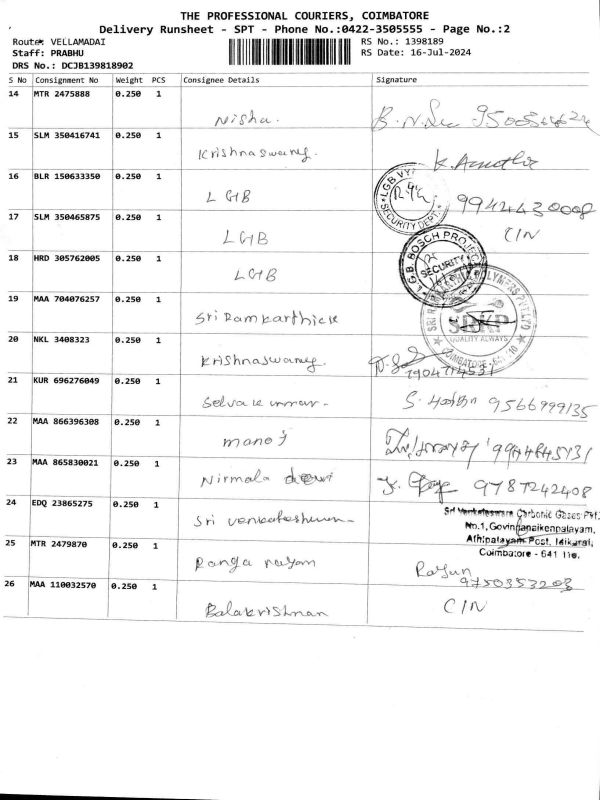 THE PROFESSIONAL COURIERS, COIMBATORE
Delivery Runsheet - SPT - Phone No.:0422-3505555 - Page No.:2
Route: VELLAMADAI
RS No.: 1398189
Staff: PRABHU
RS Date: 16-Jul-2024
DRS No.: DCJB139818902
S No Consignment No Weight PCS Consignee Details Signature
14 MTR 2475888 0.250 1
Nisha.
15 SLM 350416741 0.250 1
Krishnaswamy.
16 BLR 150633350 0.250 1
LGB
LGB
SECURITY DEPT.
9944430008
17 SLM 350465875 0.250 1
LGB
CIN
18 HRD 305762005 0.250 1
LGB
L.G.B. BOSCH PROJE
SECURITY
19 MAA 704076257 0.250 1
Sri Ramkarthick
SRKP
QUALITY ALWAYS
COIMBATORE
20 NKL 3408323 0.250 1
Krishnaswamy
21 KUR 696276049 0.250 1
Selvakumar-
9566999135
22 MAA 866396308 0.250 1
manoj
23 MAA 865830021 0.250 1
Nirmala devi
9787242408
24 EDQ 23865275 0.250 1
Sri venkateshwara
Sri Venkateswara Carbonic Gases Pvt.
No.1, Govindanaikenpalayam,
Athipalayam Post, Idikarai,
Coimbatore - 641
25 MTR 2479870 0.250 1
Ranga nayam
9750353203
26 MAA 110032570 0.250 1
Balakrishnan
CIN